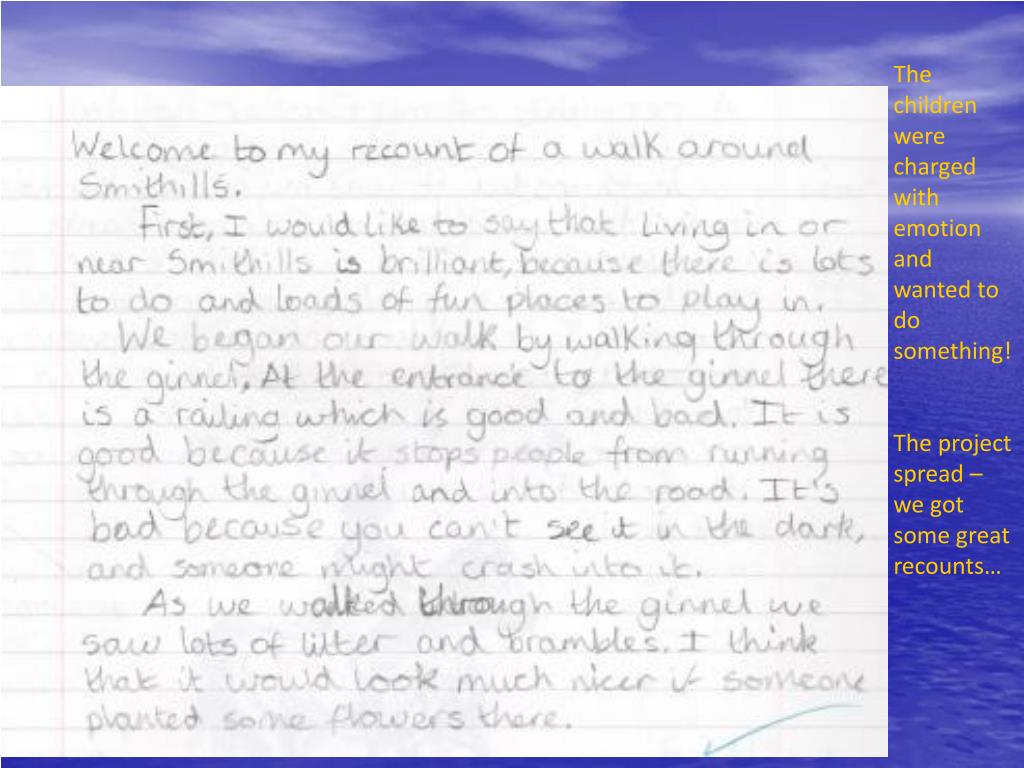 Welcome to my recount of a walk around
Smithills.
First, I would like to say that living in or
near Smithills is brilliant, because there is lots
to do and loads of fun places to play in.
We began our walk by walking through
the ginnel, At the entrance to the ginnel there
is a railing which is good and bad. It is
good because it stops people from running
through the ginnel and into the road. It's
bad because you can't see it in the dark,
and someone might crash into it.
As we walked through the ginnel we
saw lots of litter and brambles. I think
that it would look much nicer if someone
planted some flowers there.
The
children
were
charged
with
emotion
and
wanted to
do
something!
The project
spread –
we got
some great
recounts...